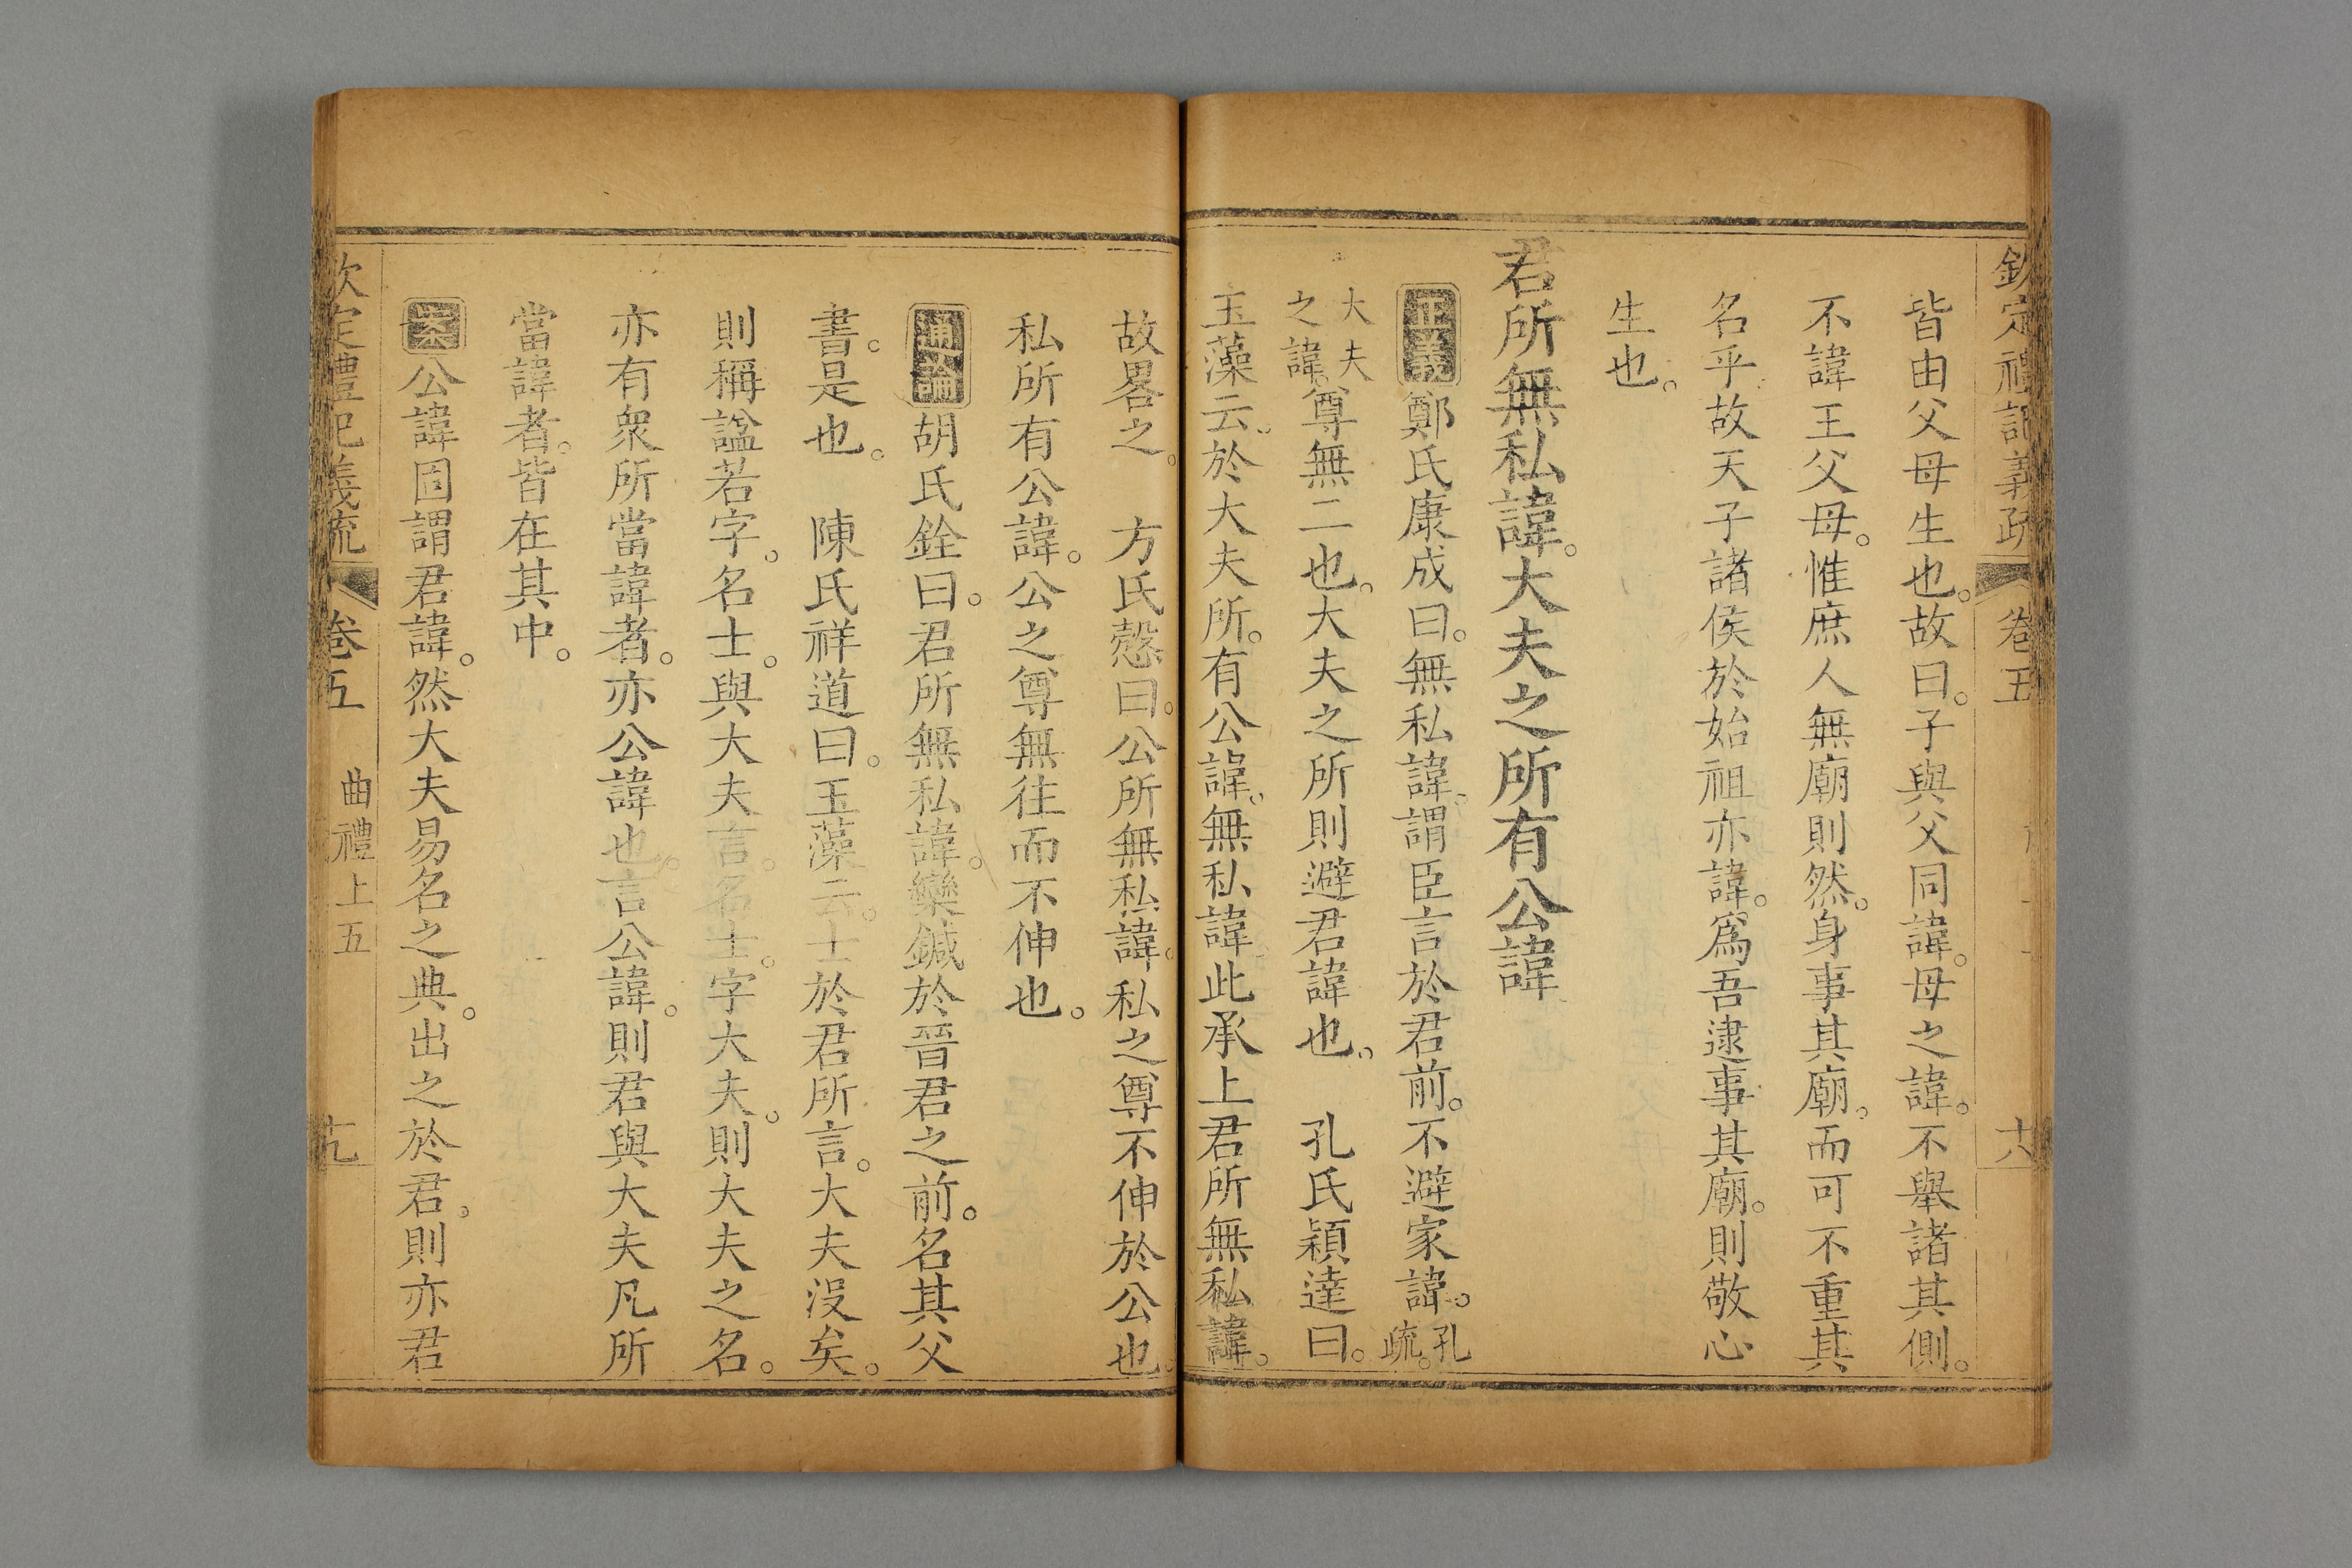 欽定禮記義疏 卷五 六
皆由父母生也。故曰。子與父同諱。母之諱。不舉諸其側。
不諱王父母。惟庶人無廟則然。身事其廟。而可不重其
名乎故天子諸侯於始祖亦諱。爲吾逮事其廟。則敬心
生也。
君所無私諱。大夫之所有公諱
正義鄭氏康成曰。無私諱。謂臣言於君前。不避家諱。孔疏。
大夫之諱。尊無二也。大夫之所則避君諱也。 孔氏穎達曰。
玉藻云。於大夫所。有公諱。無私諱此承上君所無私諱。
故畧之。 方氏慤曰。公所無私諱。私之尊不伸於公也。
私所有公諱。公之尊無往而不伸也。
通論胡氏銓曰。君所無私諱。欒鍼於晉君之前。名其父
書。是也。 陳氏祥道曰。玉藻云。士於君所言。大夫沒矣。
則稱諡若字。名士。與大夫言。名士。字大夫。則大夫之名。
亦有衆所當諱者。亦公諱也。言公諱。則君與大夫凡所
當諱者。皆在其中。
案公諱固謂君諱。然大夫易名之典。出之於君。則亦君
欽定禮記義疏 卷五 曲禮上五